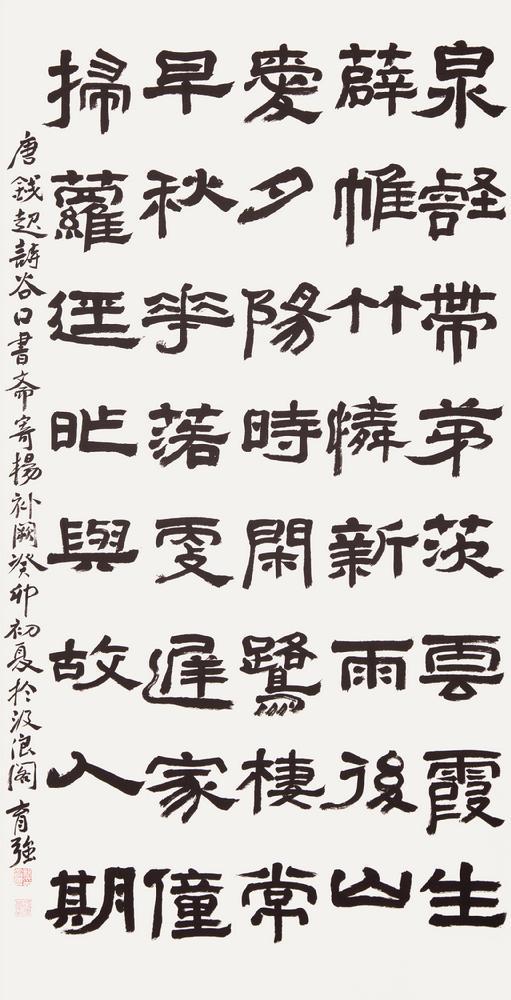 泉壑帶茅茨雲霞生
薜帷竹憐新雨後山
愛夕陽時閑鷺棲常
早秋花落更遲家僮
掃蘿徑昨與故人期
唐錢起詩谷口書斋寄楊补闕癸卯初夏於汲浪阁育强